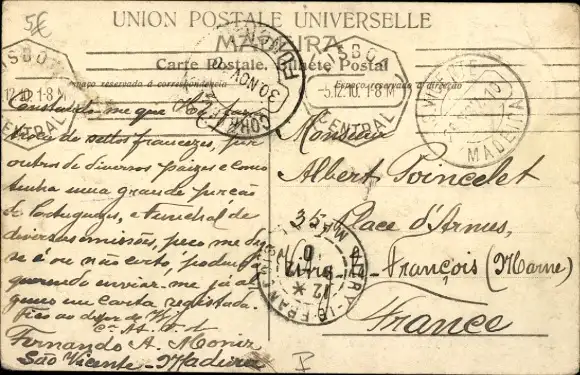 5€
UNION POSTALE UNIVERSELLE
MADEIRA
Carte Postale. Bilhete Postal
Espaço reservado á correspondencia
Espaço reservado á direcção
LISBOA
-5.12.10. 1-8 M
CENTRAL
12.10. 1-8 M
CENTRAL
30 NOV
S. VICENTE
MADEIRA
Constando-me que V. faz
troca de sellos francezes, por
outros de diversos paizes e como
tenha uma grande porção
de Portuguezes, e Funchal de
diversas emissões, peço me diga
se é ou não certo, podendo
querendo enviar-me já al
guns em carta registada.
Fico ao dispor de V.
Fernando A. Moniz
São Vicente - Madeira
Monsieur
Albert Poincelet
35, Place d'Armes,
Vitry-le-François (Marne)
France
VITRY-LE-FRANÇOIS
MARNE
12